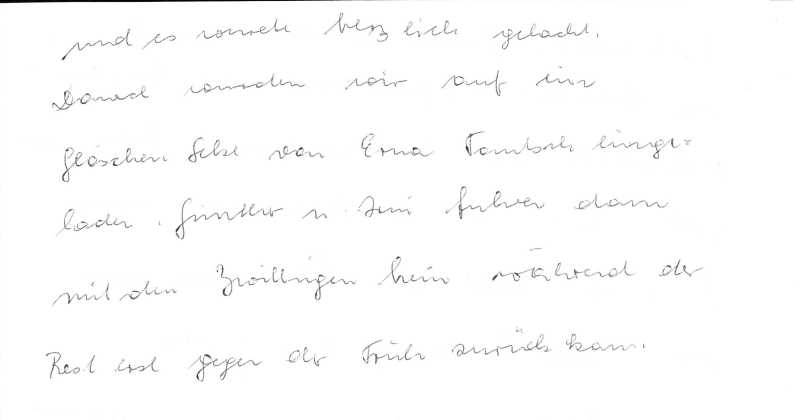 und es wurde herzlich gelacht.
Danach wurden wir auf ein
Gläschen Sekt von Erna einge-
laden. Günther u. fuhren dann
mit den Zwillingen heim während der
Rest erst gegen der Früh zurück kam.